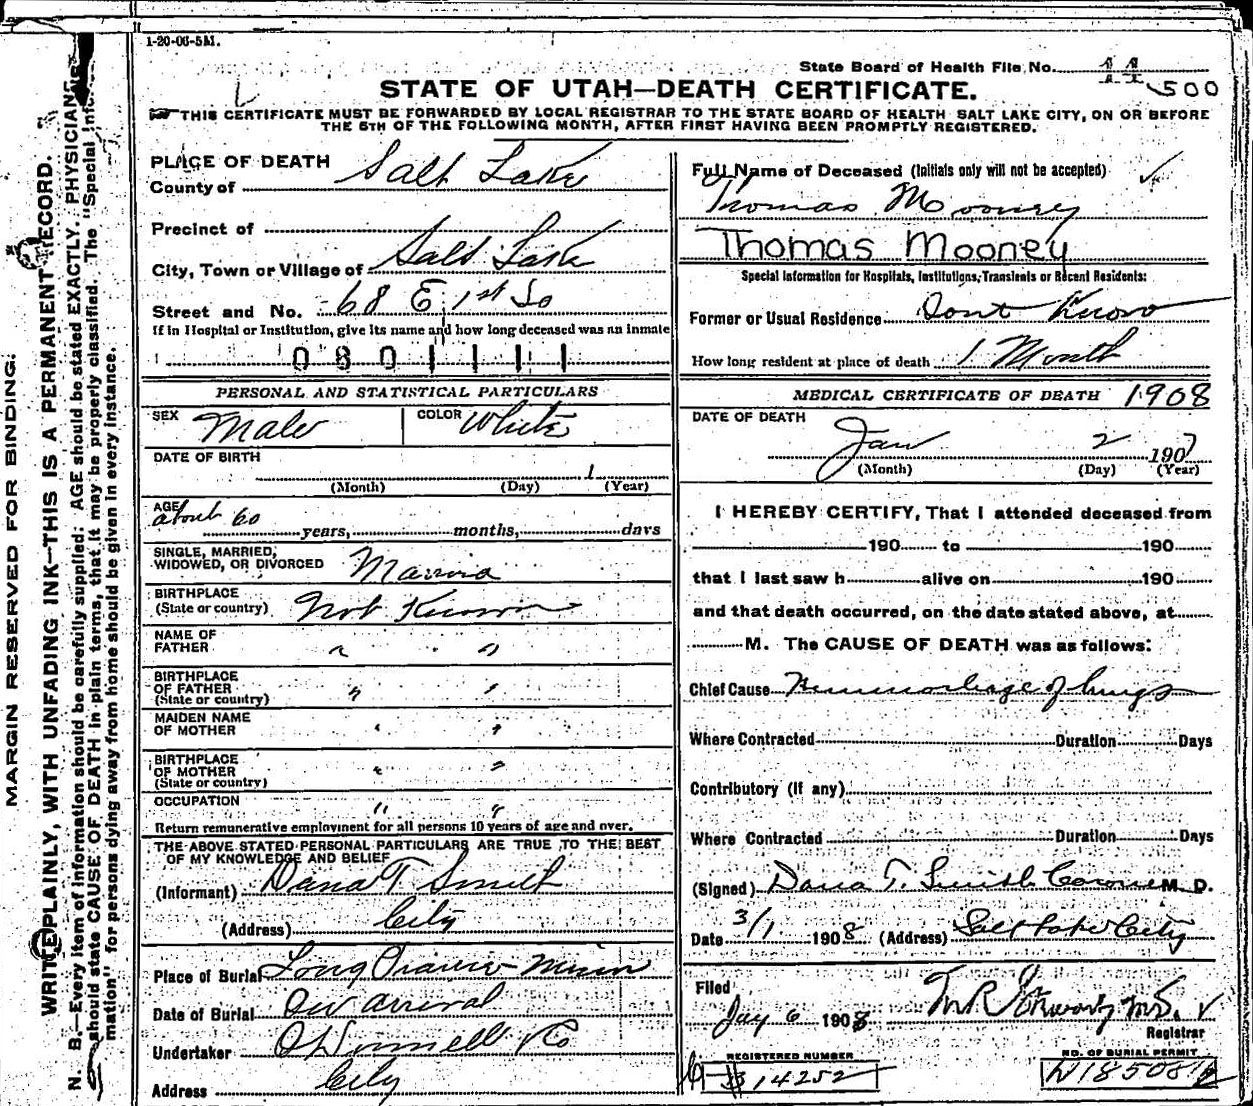 1-20-06-5M.
State Board of Health File No. 11
500
STATE OF UTAH—DEATH CERTIFICATE.
THIS CERTIFICATE MUST BE FORWARDED BY LOCAL REGISTRAR TO THE STATE BOARD OF HEALTH SALT LAKE CITY, ON OR BEFORE
THE 5TH OF THE FOLLOWING MONTH, AFTER FIRST HAVING BEEN PROMPTLY REGISTERED.
MARGIN RESERVED FOR BINDING.
WRITE PLAINLY, WITH UNFADING INK—THIS IS A PERMANENT RECORD.
N. B.—Every item of information should be carefully supplied; AGE should be stated EXACTLY. PHYSICIANS
should state CAUSE OF DEATH in plain terms, that it may be properly classified. The "Special Infor-
mation" for persons dying away from home should be given in every instance.
PLACE OF DEATH
County of Salt Lake
Precinct of
City, Town or Village of Salt Lake
Street and No. 68 E 1st So
If in Hospital or Institution, give its name and how long deceased was an inmate
0801111
PERSONAL AND STATISTICAL PARTICULARS
SEX Male COLOR White
DATE OF BIRTH
1
(Month) (Day) (Year)
AGE about 60
years, months, days
SINGLE, MARRIED,
WIDOWED, OR DIVORCED Married
BIRTHPLACE
(State or country) Not Known
NAME OF
FATHER " "
BIRTHPLACE
OF FATHER " "
(State or country)
MAIDEN NAME
OF MOTHER " "
BIRTHPLACE
OF MOTHER " "
(State or country)
OCCUPATION " "
Return remunerative employment for all persons 10 years of age and over.
THE ABOVE STATED PERSONAL PARTICULARS ARE TRUE TO THE BEST
OF MY KNOWLEDGE AND BELIEF
(Informant) Dana T Smith
(Address) City
Place of Burial Long Prairie Minn
Date of Burial On arrival
Undertaker O'Donnell & Co
Address City
Full Name of Deceased (Initials only will not be accepted)
Thomas Mooney
Thomas Mooney
Special Information for Hospitals, Institutions, Transients or Recent Residents:
Former or Usual Residence Dont Know
How long resident at place of death 1 Month
MEDICAL CERTIFICATE OF DEATH 1908
DATE OF DEATH
Jan 2 1907
(Month) (Day) (Year)
I HEREBY CERTIFY, That I attended deceased from
190 to 190
that I last saw h alive on 190
and that death occurred, on the date stated above, at
M. The CAUSE OF DEATH was as follows:
Chief Cause Hemmorhage of lungs
Where Contracted Duration Days
Contributory (if any)
Where Contracted Duration Days
(Signed) Dana T. Smith Coroner M. D.
Date 3/1 1908 (Address) Salt Lake City
Filed
Jay 6 1908
Registrar
REGISTERED NUMBER
B 14252
NO. OF BURIAL PERMIT